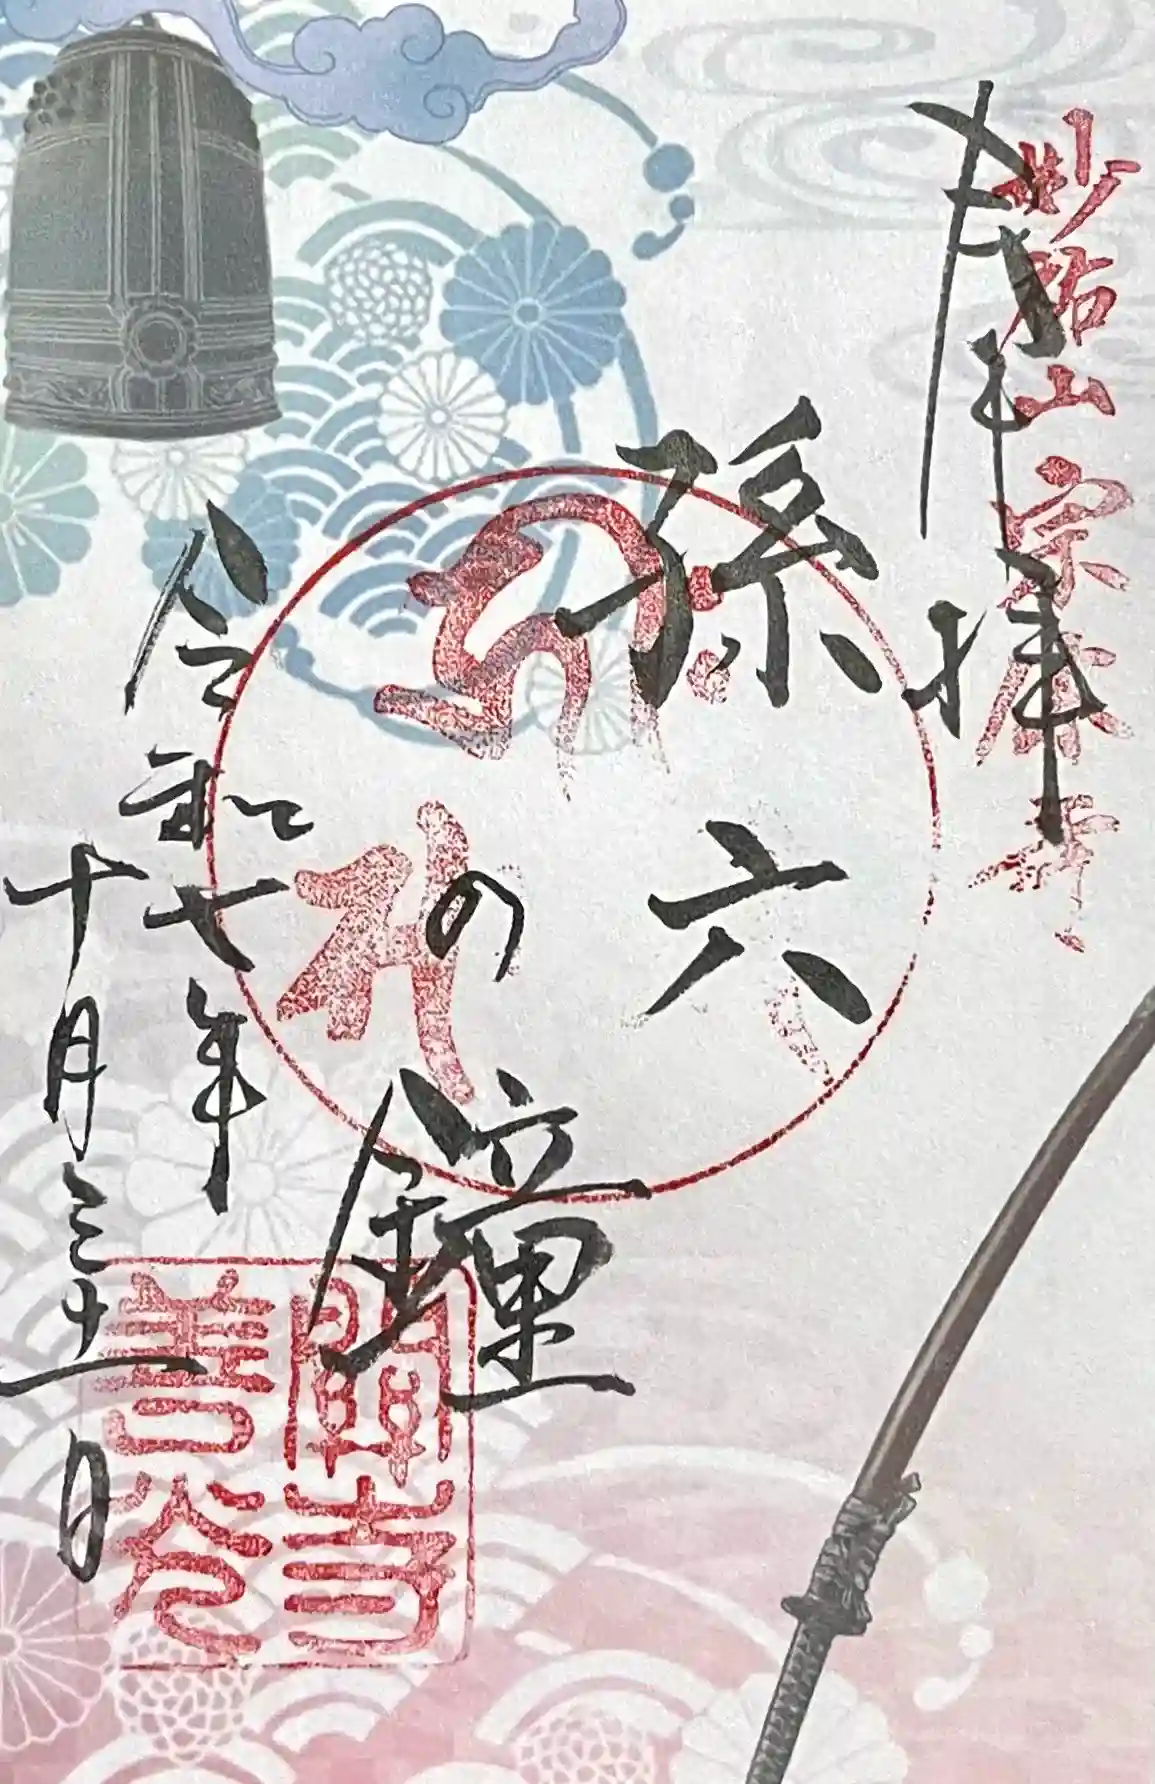 妙祐山宗休寺
奉拝
孫六
の鐘
令和七年
十月三十一日
關善光寺